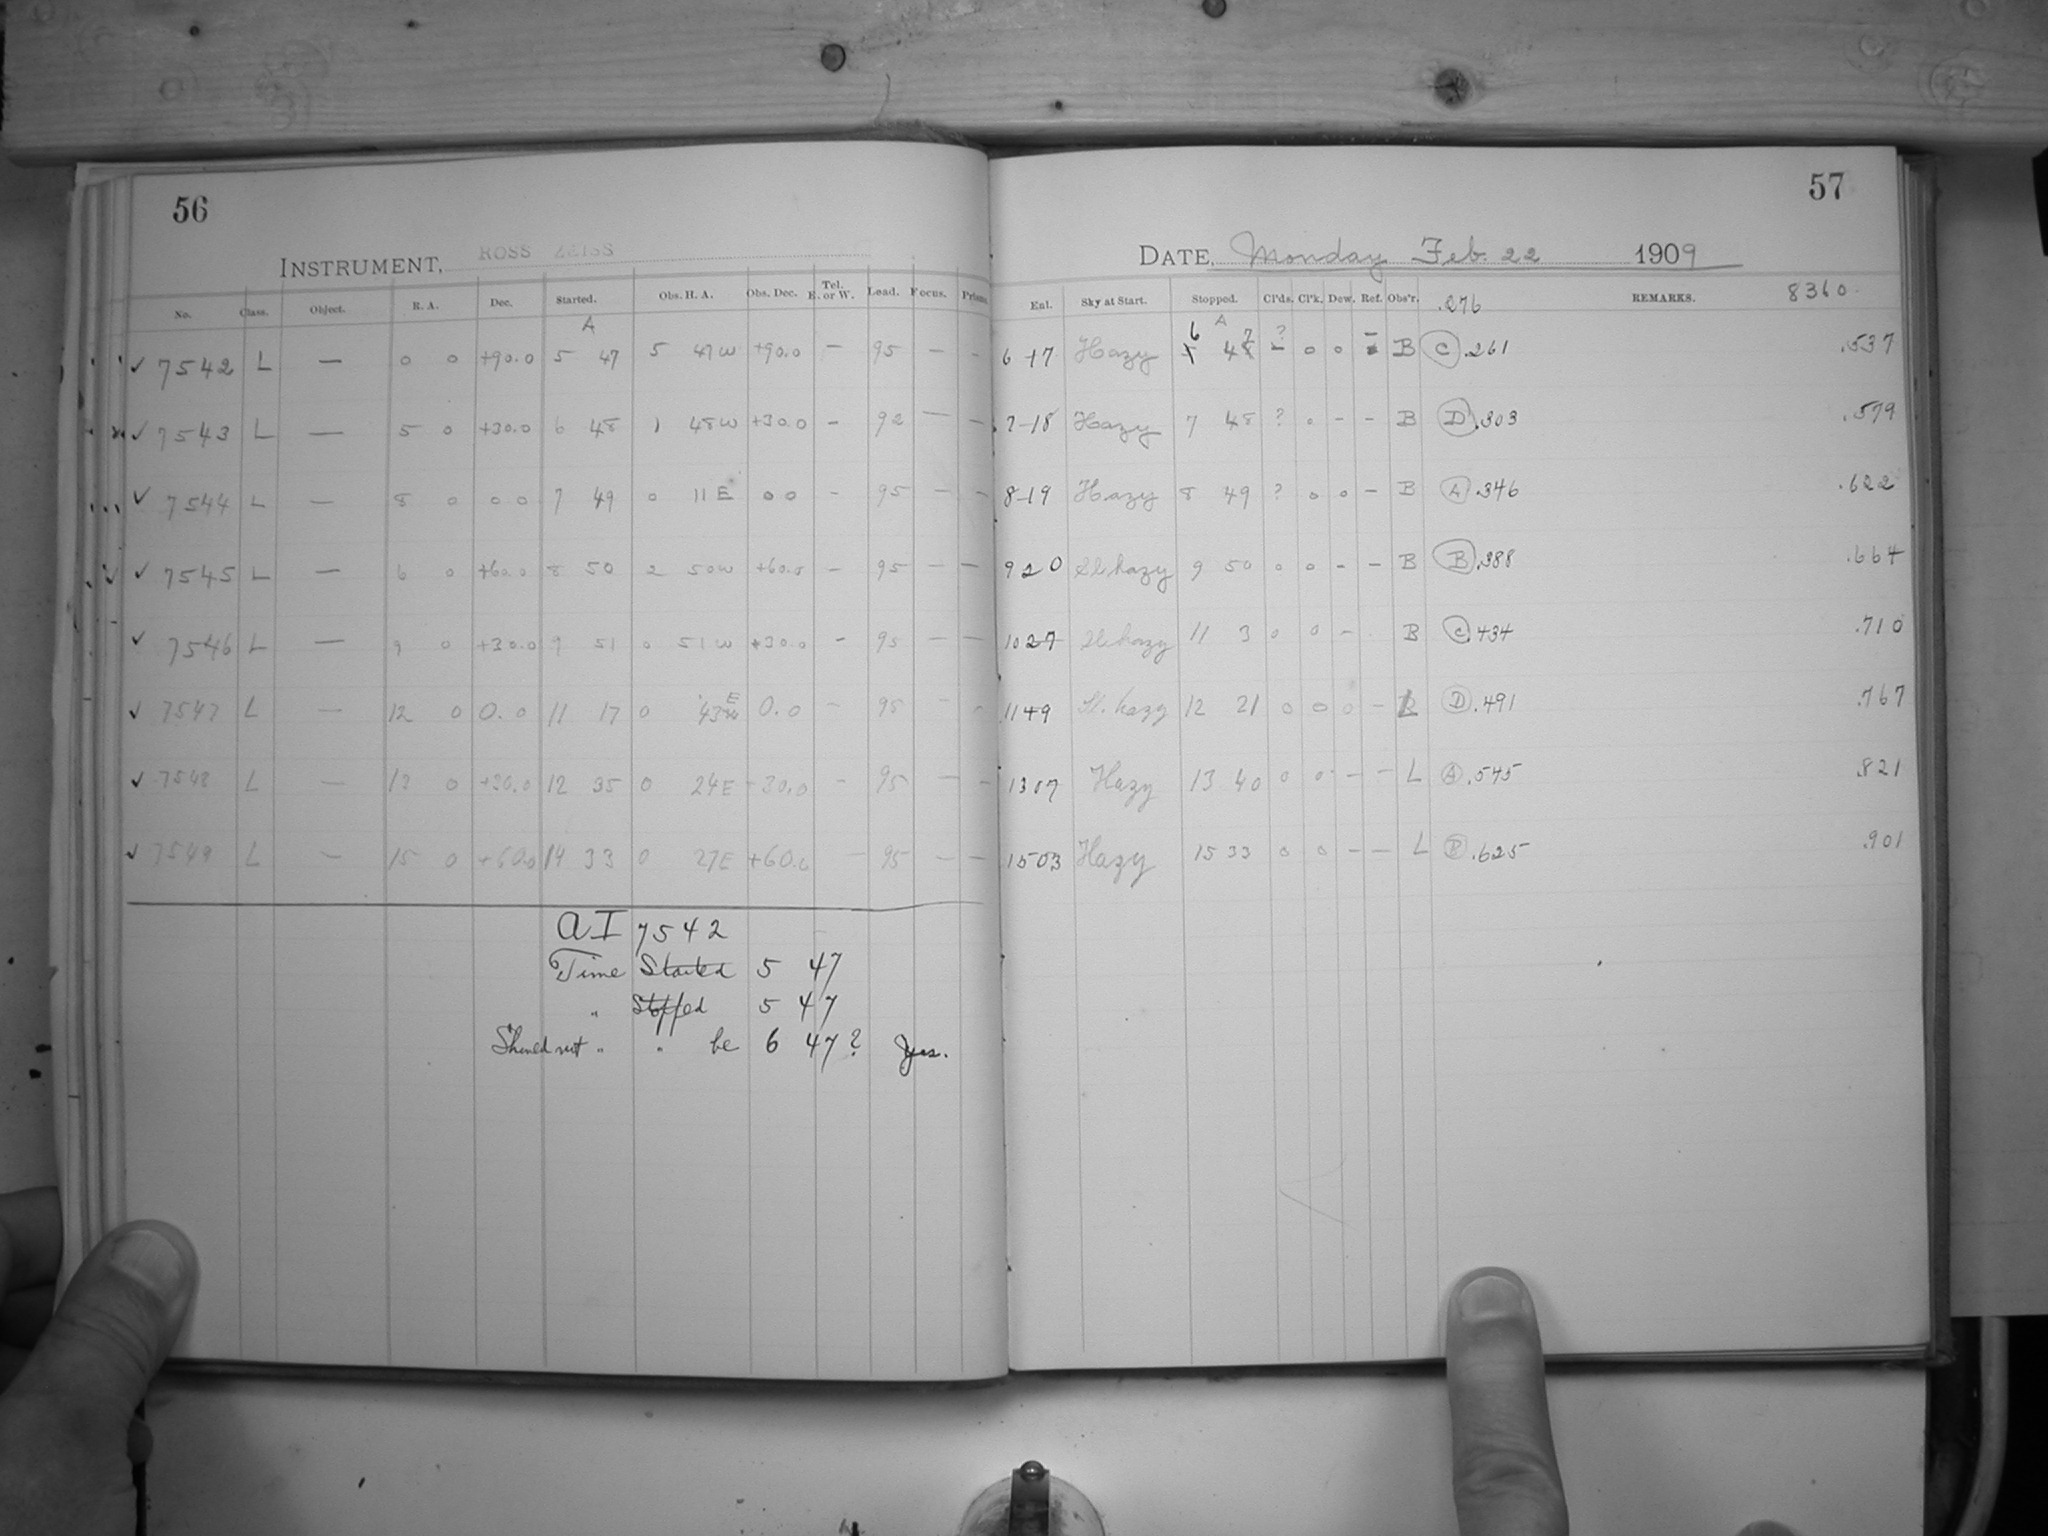 56
INSTRUMENT, ROSS ZEISS
No. Class. Object. R. A. Dec. Started. Obs. H. A. Obs. Dec. Tel. E. or W. Lead. Focus. Prisms.
A
✓ 7542 L — 0 0 +90.0 5 47 5 47W +90.0 — 95 — —
✓ 7543 L — 5 0 +30.0 6 48 1 48W +30.0 — 92 — —
✓ 7544 L — 8 0 0 0 7 49 0 11E 0 0 - 95 — —
✓ 7545 L — 6 0 +60.0 8 50 2 50W +60.0 — 95 — —
✓ 7546 L — 9 0 +30.0 9 51 0 51W +30.0 - 95 — —
✓ 7547 L — 12 0 0.0 11 17 0 43E 0.0 - 95 - -
✓ 7548 L — 13 0 +30.0 12 35 0 24E +30.0 - 95 — —
✓ 7549 L — 15 0 +60.0 14 33 0 27E +60.0 — 95 — —
AI 7542
Time Started 5 47
" Stopped 5 47
Should not " " be 6 47? Yes.
57
DATE, Monday Feb. 22 1909
Enl. Sky at Start. Stopped. Cl'ds. Cl'k. Dew. Ref. Obs'r. .276 REMARKS. 8360.
6 17 Hazy 6 47 ? o o – B C .261 .537
7-18 Hazy 7 48 ? o - - B D .303 .579
8-19 Hazy 8 49 ? o o - B A .346 .622
9 20 Sl. hazy 9 50 o o - - B B .388 .664
10 27 Sl. hazy 11 3 o o - B C .434 .710
11 49 Sl. hazy 12 21 o o o - L D .491 .767
13 07 Hazy 13 40 o o - - L A .545 .821
15 03 Hazy 15 33 o o - - L B .625 .901